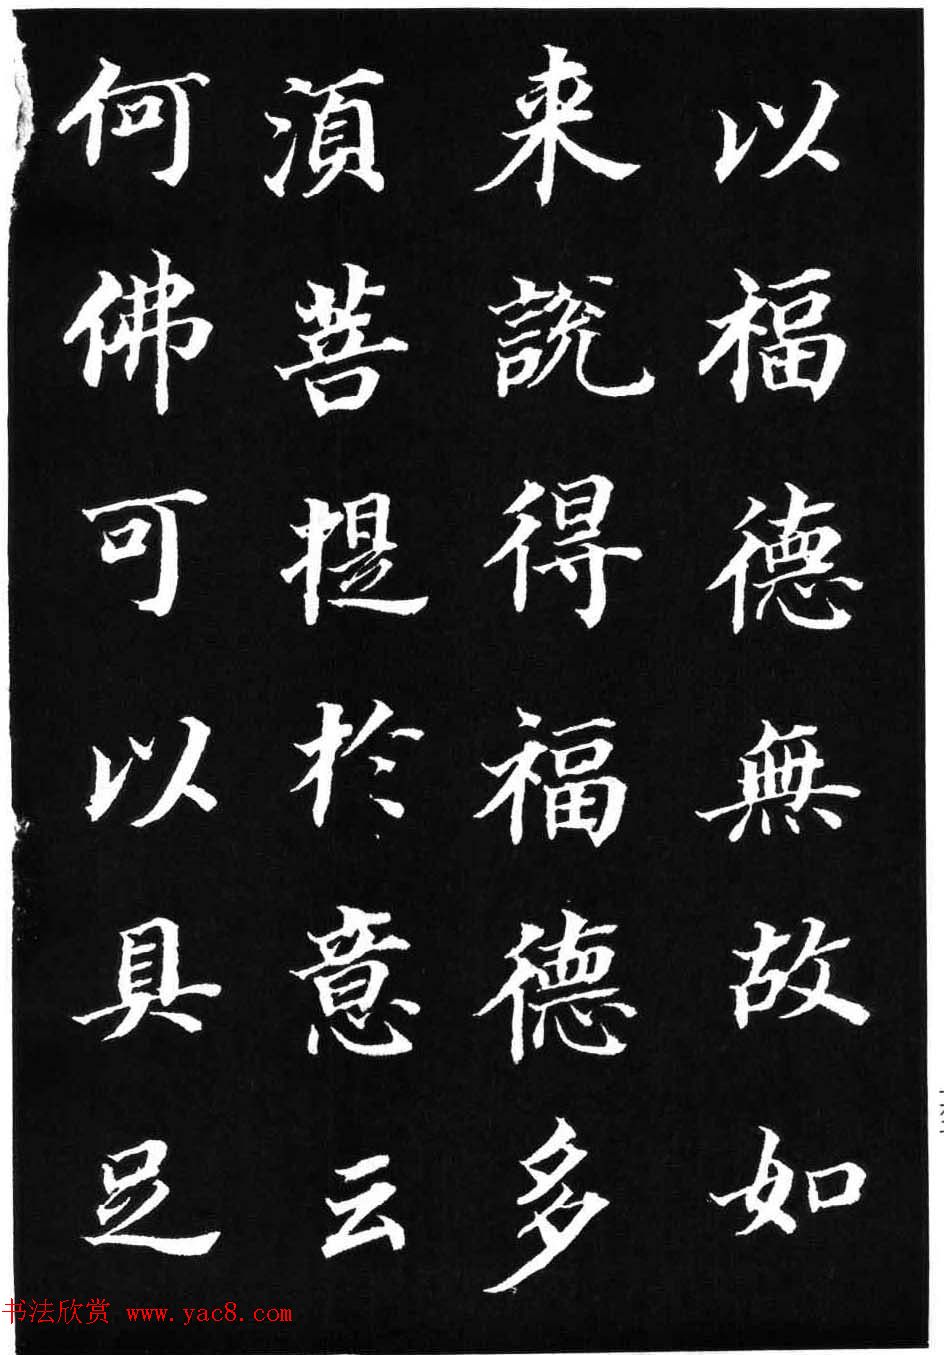 以福德無故如
来說得福德多
湏菩提於意云
何佛可以具足
书法欣赏 www.yac8.com